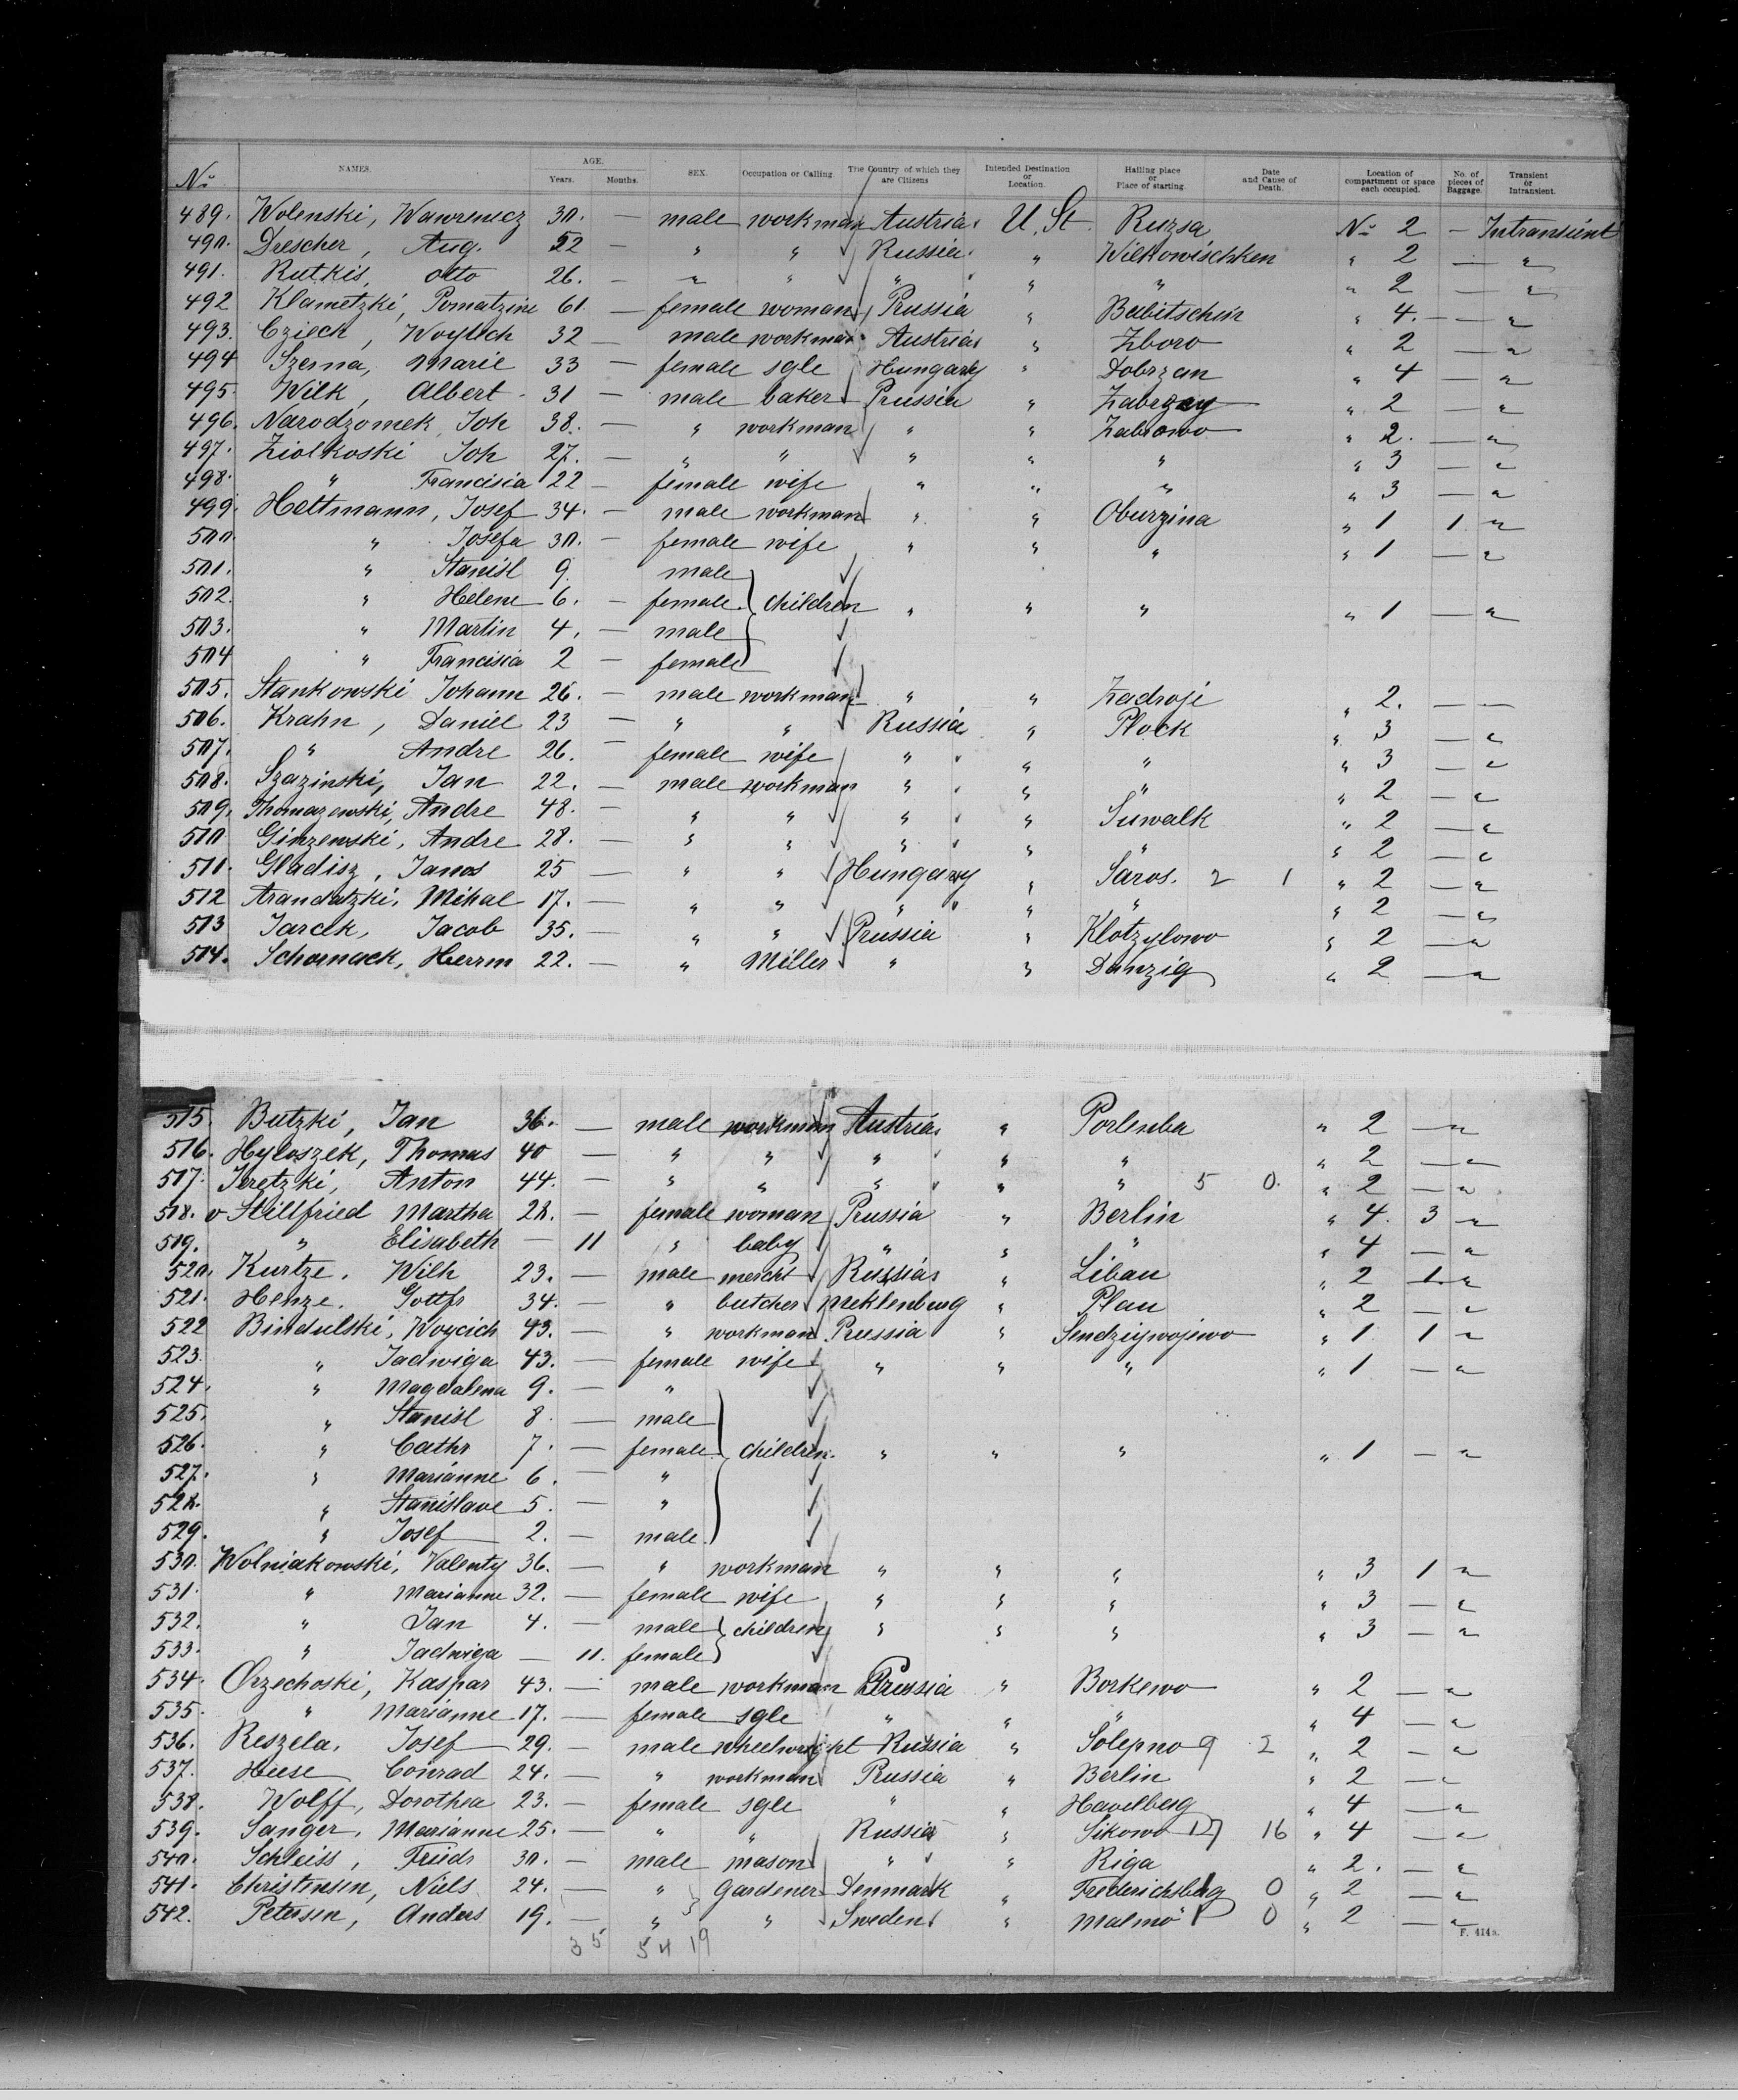 No. NAMES. AGE. Years. Months. SEX. Occupation or Calling The Country of which they are Citizens Intended Destination or Location. Hailing place or Place of starting. Date and Cause of Death. Location of compartment or space each occupied. No. of pieces of Baggage. Transient or Intransient.
489. Wolenski, Wawrenicz 30. — male workman Austria U. St Ruzsa No 2 — Intransient
490. Drescher, Aug. 52 — " " Russia " Wilkowischken " 2 — "
491. Rutkis, Otto 26. — " " " " " " 2 — "
492 Klametzki, Pomatzine 61 — female woman Prussia " Bubitschin " 4. — "
493. Cziech, Woytech 32 — male workman Austria " Zboro " 2 — "
494 Szema, Marie 33 — female sgle Hungary " Dobrzan " 4 — "
495. Wilk, Albert 31 — male baker Prussia " Zabrzay " 2 — "
496. Narodzomek, Joh 38. — " workman " " Zabrowo " 2. — "
497. Ziolkoski Joh 27. — " " " " " " 3 — "
498. " Francisia 22 — female wife " " " " 3 — "
499. Heltmann, Josef 34. — male workman " " Oburzina " 1 1. "
500. " Josefa 30. — female wife " " " " 1 — "
501. " Stanisl 9. male
502. " Helene 6. — female children " " " " 1 — "
503. " Martin 4. — male
504 " Francisia 2 — female
505. Stankowski Johann 26. — male workman " " Zadroje " 2. — —
506. Krahn, Daniel 23 — " " Russia " Plock " 3 — "
507. " Andre 26. — female wife " " " " 3 — "
508. Szazinski, Jan 22. — male workman " " " " 2 — "
509. Thomazewski, Andre 48. — " " " " Suwalk " 2 — "
510 Ginzewski, Andre 28. — " " " " " " 2 — "
511. Gladisz, Janos 25 — " " Hungary " Saros. 2 1 " 2 — "
512 Arandatzki, Mihal 17. — " " " " " " 2 — "
513 Jarcek, Jacob 35. — " " Prussia " Klotzylowo " 2 — "
514. Schornack, Herrm 22. — " Miller " " Danzig " 2 — "
515. Butzki, Jan 36. — male workman Austria " Porlemba " 2 — "
516. Hyloszek, Thomas 40 — " " " " " " 2 — "
517. Jretzki, Anton 44. — " " " " " 5 0. " 2 — "
518. v Stillfried Martha 28. — female woman Prussia " Berlin " 4. 3 "
519. " Elisabeth — 11 " baby " " " " 4 — "
520. Kurtze, Wilh 23. — male mercht Russia " Libau " 2 1. "
521. Henze. Gottfr 34. — " butcher Meklenburg " Plau " 2 — "
522 Bindulski, Woycich 43. — " workman Prussia " Sendziywojewo " 1 1 "
523. " Jadwiga 43. — female wife " " " " 1 — "
524. " Magdalena 9. — "
525. " Stanisl 8. — male
526. " Cathr 7. — female children " " " " 1 — "
527. " Marianne 6. — "
528. " Stanislave 5. — "
529. " Josef 2. — male
530. Wolniakowski, Valenty 36. — " workman " " " " 3 1 "
531. " Marianne 32. — female wife " " " " 3 — "
532. " Jan 4. — male children " " " " 3 — "
533. " Jadwiga — 11. female
534. Orzechoski, Kaspar 43. — male workman Prussia " Borkewo " 2 — "
535. " Marianne 17. — female sgle " " " " 4 — "
536. Reszela, Josef 29. — male wheelwright Russia " Solepno 9 2 " 2 — "
537. Heese Conrad 24. — " workman Prussia " Berlin " 2 — "
538. Wolff, Dorothea 23. — female sgle " " Havelberg " 4 — "
539. Sanger, Marianne 25. — " " Russia " Sikowo 17 16 " 4 — "
540. Schleiss, Friedr 30. — male mason " " Riga " 2. — "
541. Christensen, Niels 24. — " Gardener Denmark " Frederichsberg 0 " 2 — "
542. Petersen, Anders 19. — " " Sweden " Malmö 1 0 " 2 — "
35 54 19
F. 414a.